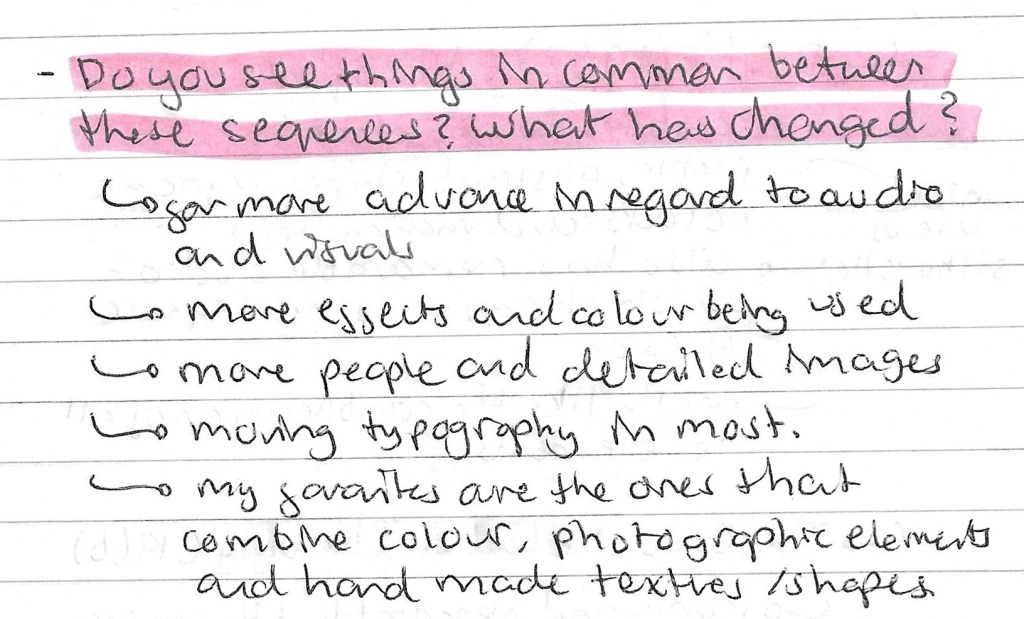 - Do you see things in common between
these sequences? What has changed?
↳ far more advance in regard to audio
and visuals
↳ more effects and colour being used
↳ more people and detailed images
↳ moving typography in most.
↳ my favorites are the ones that
combine colour, photographic elements
and hand made textures /shapes.